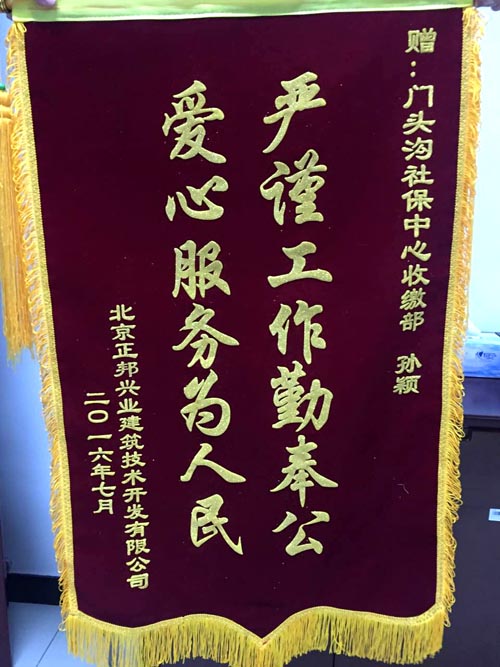 赠：门头沟社保中心收缴部 孙颖
严谨工作勤奉公
爱心服务为人民
北京正邦兴业建筑技术开发有限公司
二〇一六年七月